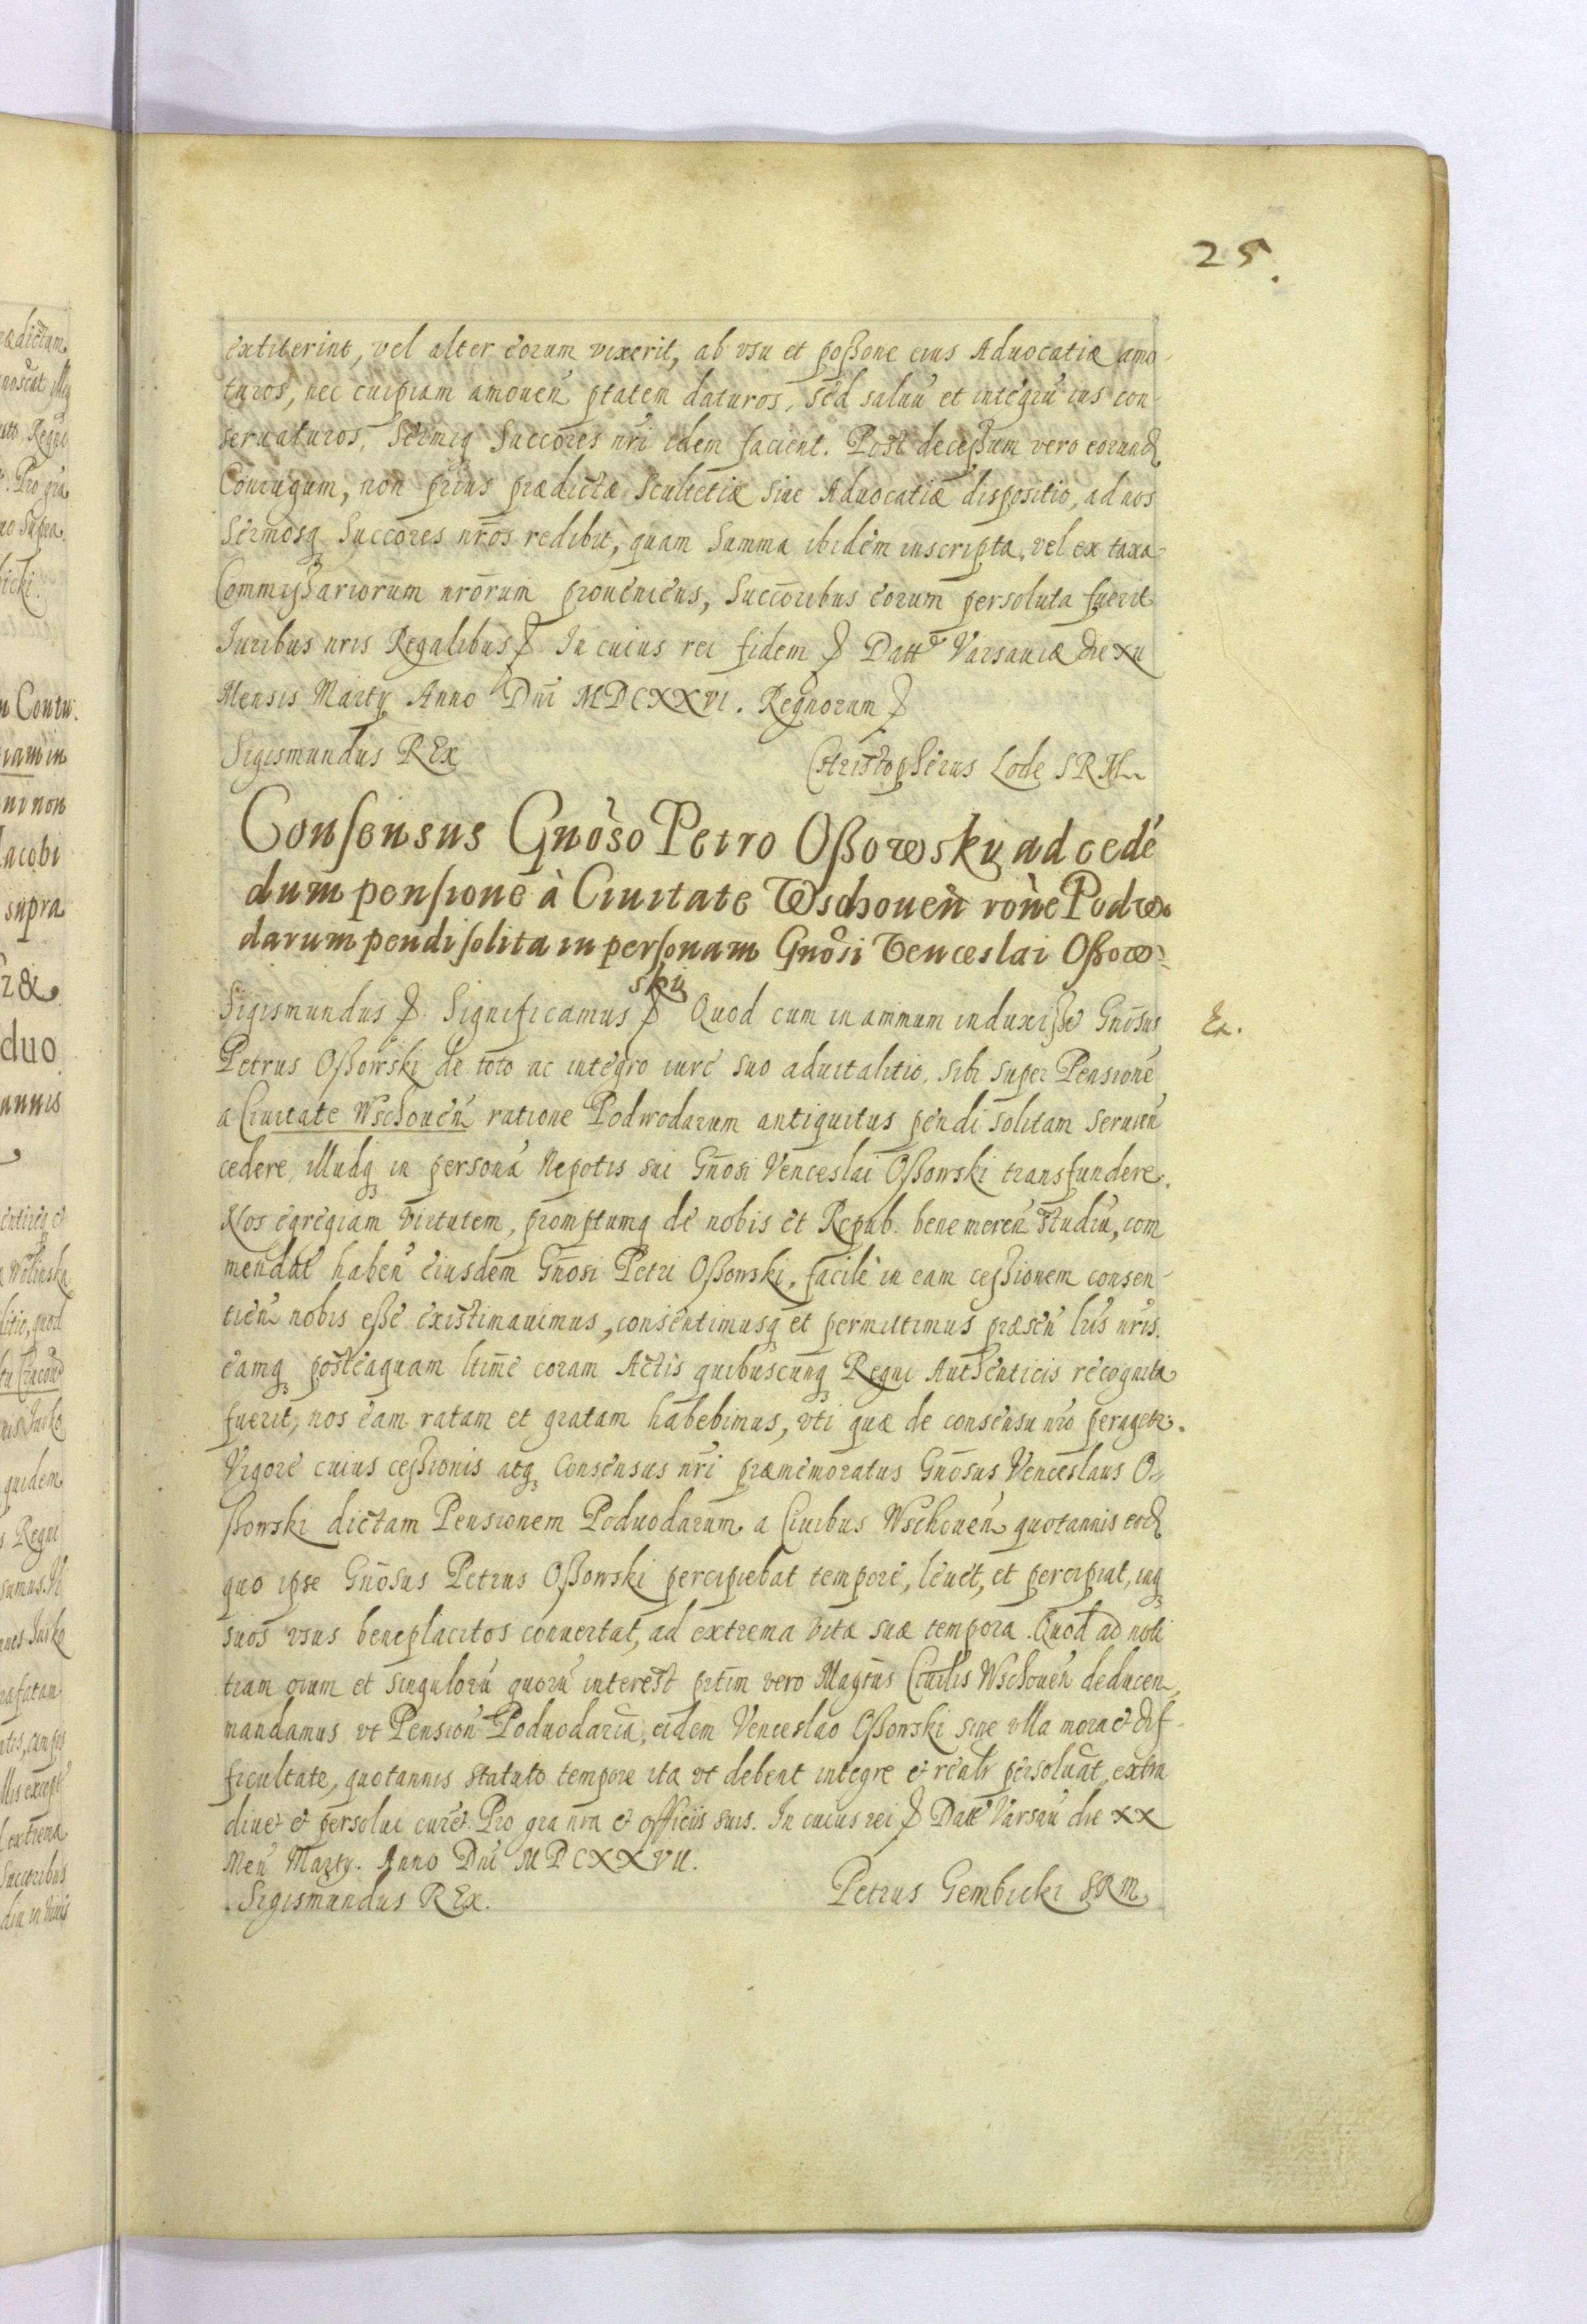 25.
extiterint, vel alter eorum vixerit, ab vsu et poßone eius Aduocatiæ amo-
turos, nec cuipiam amouen ptatem daturos, sed saluu et integru ius con-
seruaturos, Sermiq Succores nri idem facient. Post deceßum vero eorund
Coniugum, non prius prædictæ Scultetiæ siue Aduocatiæ dispositio, ad nos
Sermosq Succores nros redibit, quam Summa ibidem inscripta, vel ex taxa
Commißariorum nrorum proueniens, Succoribus eorum persoluta fuerit
Iuribus nris Regalibus In cuius rei fidem Datt Varsauiæ die XII
Mensis Martÿ Anno Dni MDCXXVI. Regnorum
Sigismundus REx
Christopherus Lode SRM
Consensus Gnoso Petro Oßowskÿ ad cedé
dum pensione à Ciuitate Wschouen rone Podwo
darum pendi solita in personam Gnosi Venceslai Oßow-
skÿ
Sigismundus Significamus Quod cum in animum induxiße Gnosus
Ex.
Petrus Oßowski de toto ac integro iure suo aduitalitio, sibi super Pensione
a Ciuitate Wschouen ratione Podwodarum antiquitus pendi solitam seruien
cedere, illudq in persona Nepotis sui Gnosi Venceslai Oßowski transfundere.
Nos egregiam virtutem, promptumq de nobis et Repub. bene meren studiu, com
mendat haben eiusdem Gnosi Petri Oßowski, facile in eam ceßionem consen-
tien nobis eße existimauimus, consentimusq et permittimus præsen lris nris.
eamq posteaquam ltime coram Actis quibuscunq Regni Authenticis recognita
fuerit, nos eam ratam et gratam habebimus, vti quæ de consensu nro peragetr.
Vigore cuius ceßionis atq Consensus nri præmemoratus Gnosus Venceslaus O-
ßowski dictam Pensionem Poduodarum a Ciuibus Wschouen quotannis eod
quo ipse Gnosus Petrus Oßowski percipiebat tempore, leuet, et percipiat, inq
suos vsus beneplacitos conuertat, ad extrema vitæ suæ tempora. Quod ad noti
tiam oium et singuloru quoru interest prtim vero Magrus Ciuilis Wschouen deducen
mandamus vt Pension Poduodaria, eidem Venceslao Oßowski sine vlla mora et dif-
ficultate, quotannis statuto tempore ita vt debent integre et realr persoluat, extra
diuet et persolui curet. Pro gra nra et officiis suis. In cuius rei Datt Varsau die XX
Men Martÿ. Anno Dni MDCXXVII.
Sigismundus REx.
Petrus Gembicki SRM